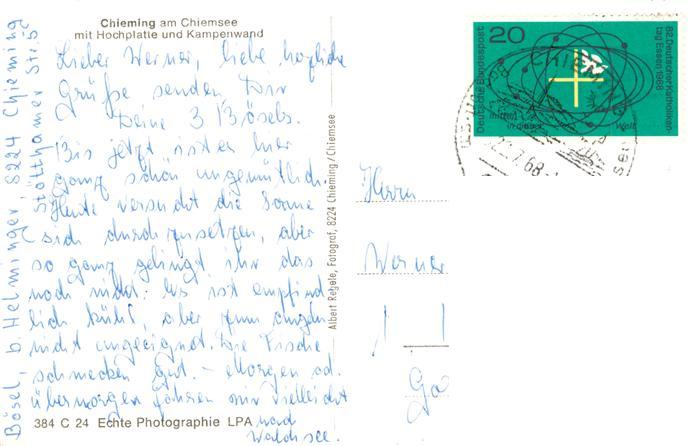 Chieming am Chiemsee
mit Hochplatte und Kampenwand
Lieber Werner, liebe herzliche
Grüße senden Dir
Deine 3 Bösels.
Bis jetzt ist es hier
ganz schön ungemütlich.
Heute versucht die Sonne
sich durchzusetzen, aber
so ganz gelingt ihr das
noch nicht. Es ist empfind
lich kühl, aber zum angeln
nicht ungeeignet. Die Fische
schmecken gut. - Morgen od.
übermorgen fahren wir vielleicht
nach
Walchsee.
384 C 24 Echte Photographie LPA
Bösel, b. Helminger, 8224 Chieming
Stötthamer Str. 5
Albert Regele, Fotograf, 8224 Chieming/Chiemsee
20
Deutsche Bundespost
82. Deutscher Katholiken-
tag Essen 1968
mitten
in dieser
Welt
CHIEM
7.68
Herrn
Werner
Ga